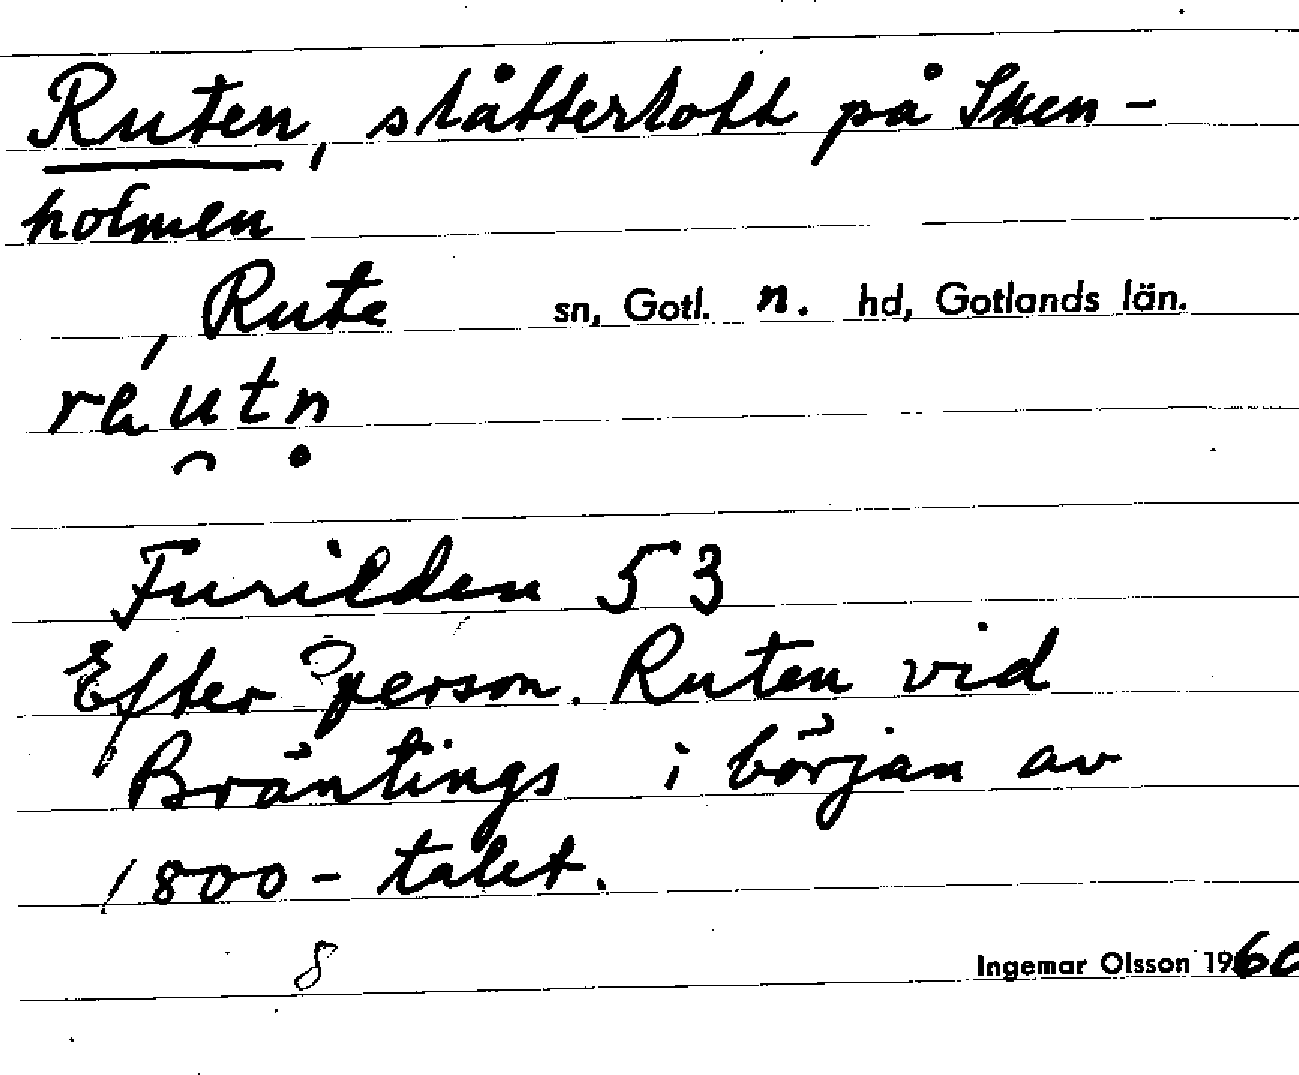 Ruten, slåttertott på Sken-
holmen
, Rute sn, Gotl. n. hd, Gotlands län.
Furilden 53
Efter person. Ruten vid
Bräntings i början av
1800-talet.
8
Ingemar Olsson 1960